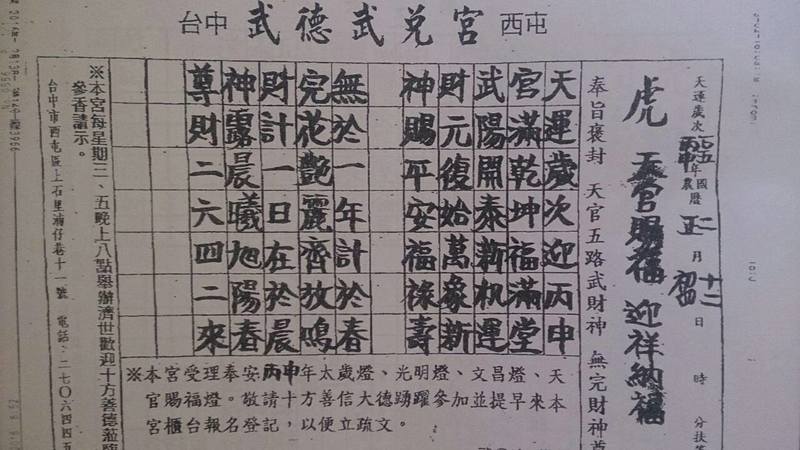 台中 武德武兌宮 西屯
天運歲次 丙申 年 國 農曆 正月 十二 日 時 分扶
虎 天官賜福 迎祥納福
奉旨褒封 天官五路武財神 無完財神尊
天運歲次迎丙申
宮滿乾坤福滿堂
武陽開泰新机運
財元復始萬象新
神賜平安福祿壽
無於一年計於春
完花艷麗齊放鳴
財計一日在於晨
神露晨曦旭陽春
尊財二六四二來
※本宮受理奉安丙申年太歲燈、光明燈、文昌燈、天
官賜福燈。敬請十方善信大德踴躍參加並提早來本
宮櫃台報名登記，以便立疏文。
※本宮每星期三、五晚上八點舉辦濟世歡迎十方善德蒞臨
參香請示。
台中市西屯區上石里湳仔巷十一號 電話：二七〇六四四五